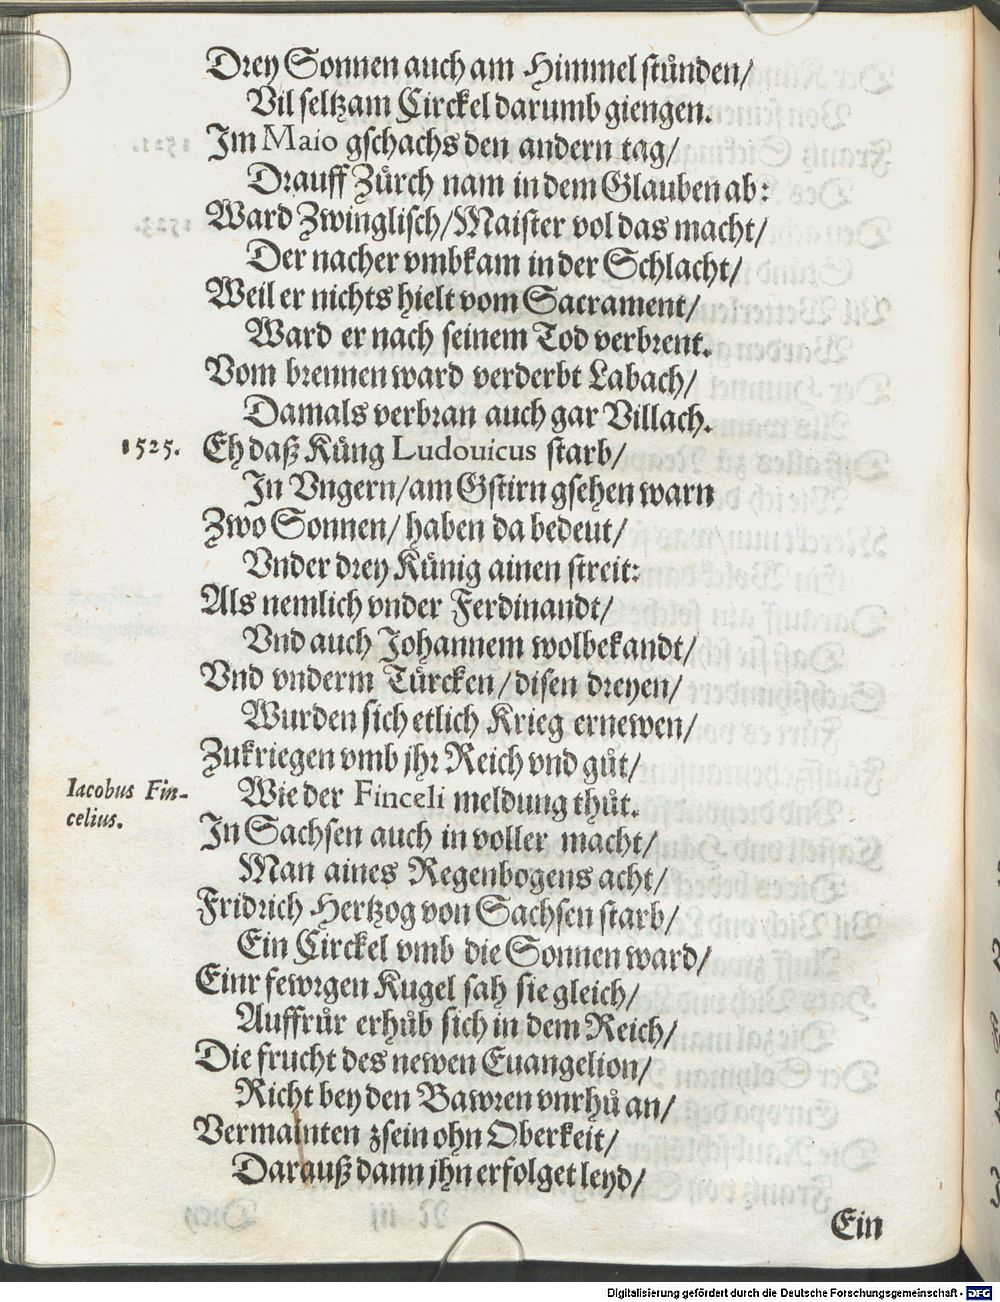 Drey Sonnen auch am Himmel stůnden/
Vil seltzam Circkel darumb giengen.
Im Maio gschachs den andern tag/
Drauff Zürch nam in dem Glauben ab:
Ward Zwinglisch/Maister vol das macht/
Der nacher vmbkam in der Schlacht/
Weil er nichts hielt vom Sacrament/
Ward er nach seinem Tod verbrent.
Vom brennen ward verderbt Labach/
Damals verbran auch gar Villach.
1525. Eh daß Küng Ludouicus starb/
In Vngern/am Gstirn gsehen warn
Zwo Sonnen/ haben da bedeut/
Vnder drey Künig ainen streit:
Als nemlich vnder Ferdinandt/
Vnd auch Johannem wolbekandt/
Vnd vnderm Türcken/disen dreyen/
Wurden sich etlich Krieg ernewen/
Zukriegen vmb jhr Reich vnd gůt/
Iacobus Fin-
celius.
Wie der Finceli meldung thůt.
In Sachsen auch in voller macht/
Man aines Regenbogens acht/
Fridrich Hertzog von Sachsen starb/
Ein Circkel vmb die Sonnen ward/
Einr fewrgen Kugel sah sie gleich/
Auffrůr erhůb sich in dem Reich/
Die frucht des newen Euangelion/
Richt bey den Bawren vnrhů an/
Vermainten zsein ohn Oberkeit/
Darauß dann jhn erfolget leyd/
Ein
Digitalisierung gefördert durch die Deutsche Forschungsgemeinschaft - DFG